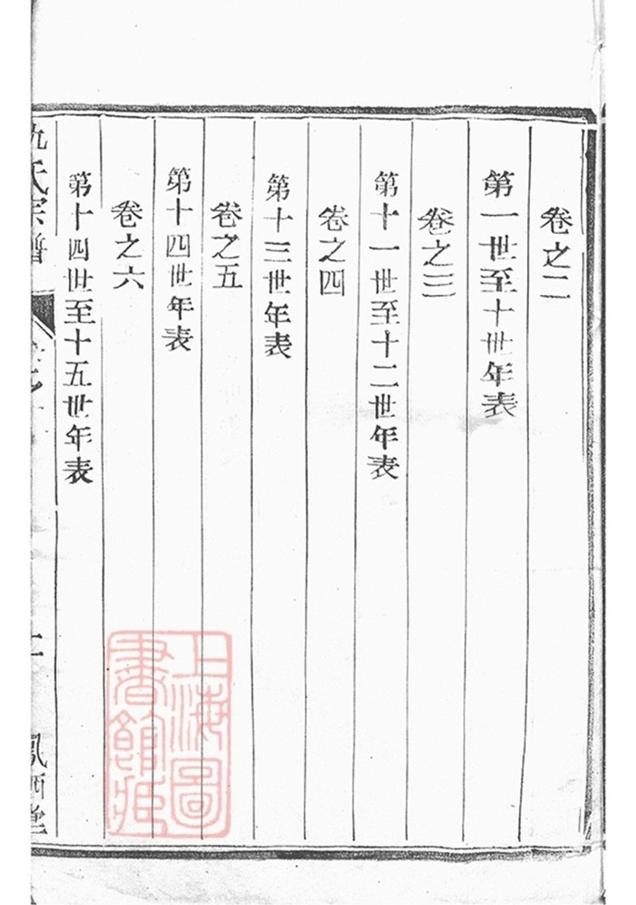 卷之二
第一世至十世年表
卷之三
第十一世至十二世年表
卷之四
第十三世年表
卷之五
第十四世年表
卷之六
第十四世至十五世年表
氏宗譜
上海圖
書館藏